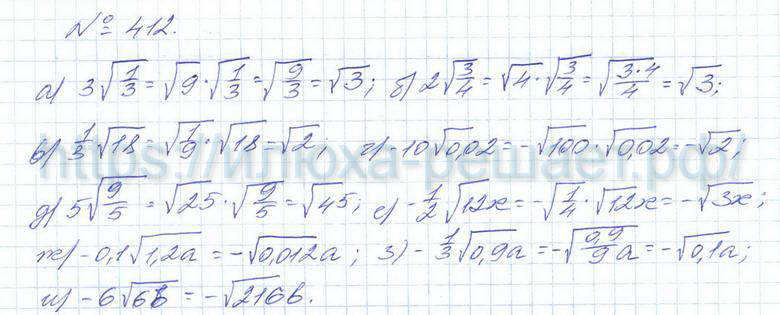 № 412.
а) 3√(1/3) = √9 · √(1/3) = √(9/3) = √3; б) 2√(3/4) = √4 · √(3/4) = √((3·4)/4) = √3;
в) 1/3 √18 = √(1/9) · √18 = √2; г) -10√0,02 = -√100 · √0,02 = -√2;
https://илюха-решает.рф/
д) 5√(9/5) = √25 · √(9/5) = √45; е) -1/2 √12x = -√(1/4) · √12x = -√3x;
ж) -0,1√1,2a = -√0,012a; з) -1/3 √0,9a = -√(0,9/9 a) = -√0,1a;
и) -6√6b = -√216b.